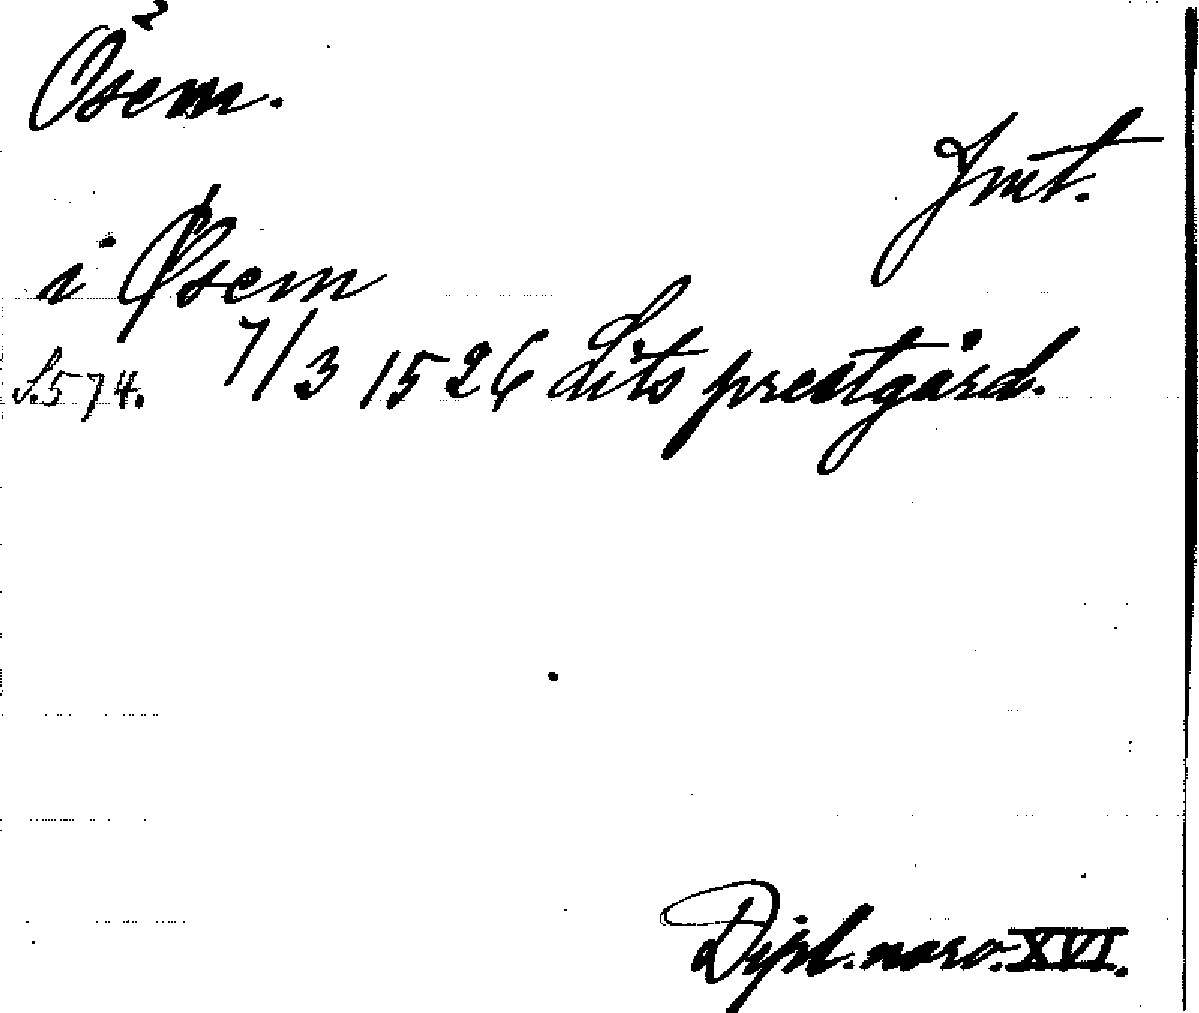 Ösem.
Jmt.
i Øsem
S. 574. 7/3 1526 Lits prestgård.
Dipl. norv. XVI.